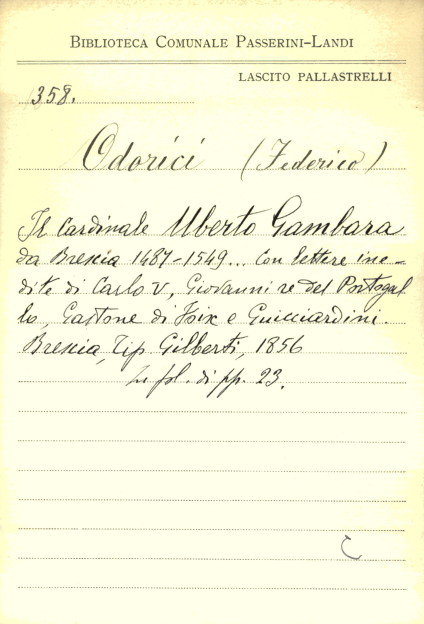 BIBLIOTECA COMUNALE PASSERINI-LANDI
LASCITO PALLASTRELLI
358.
Odorici (Federico)
Il Cardinale Uberto Gambara
da Brescia 1487-1549... Con lettere ine-
dite di Carlo V, Giovanni re del Portogal
lo, Gastone di Foix e Guicciardini.
Brescia, Tip Gilberti, 1856
In fol. di pp. 23.